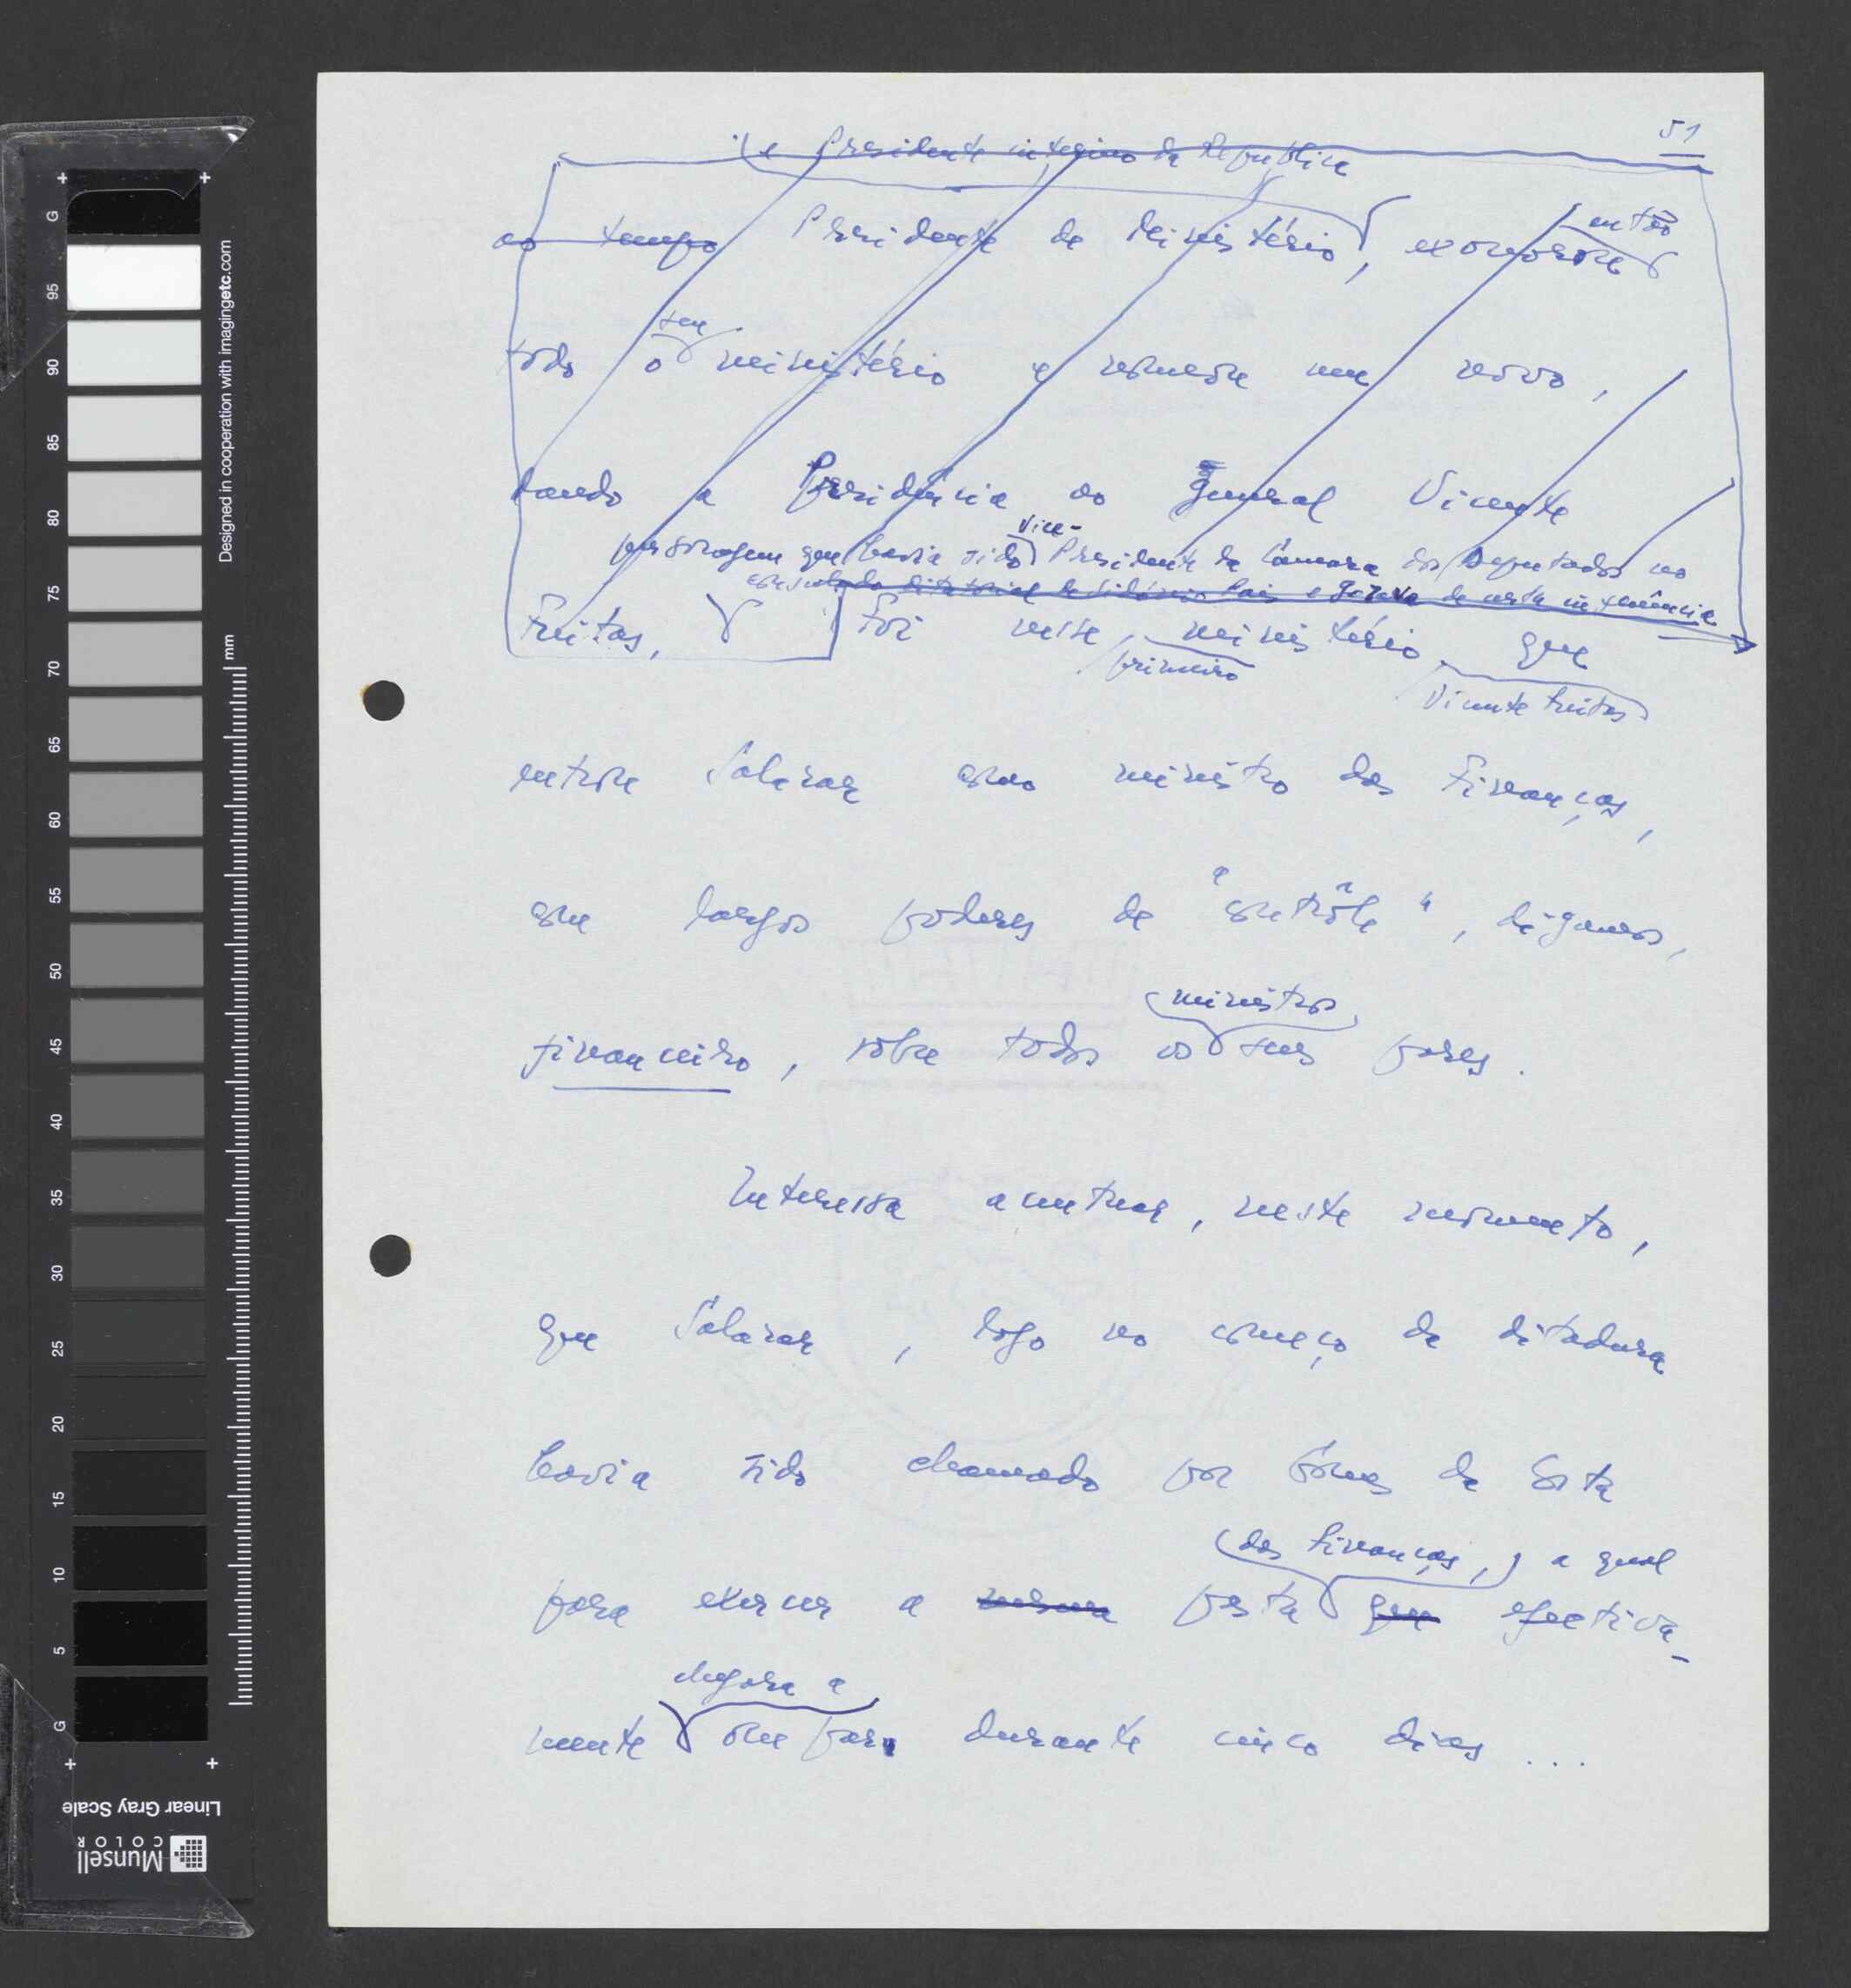 51
e Presidente interino da República
ao tempo Presidente de Ministério, exonera
então
seu
todo o ministério e nomeia um novo,
dando a Presidência ao General Vicente
Vice-
personagem que havia sido Presidente da Câmara dos Deputados no
consulado ditatorial de Sidónio Pais e gozava de certa influência
Freitas, Foi nesse ministério que
primeiro
Vicente Freitas
entrou Salazar como ministro das Finanças,
com largos poderes de "contrôle", digamos,
ministros
financeiro, sôbre todos os seus pares.
Interessa acentuar, neste momento,
que Salazar, logo no começo da ditadura
havia sido chamado por Gomes da Costa
das Finanças, a qual
para exercer a mesma pasta que efectiva-
chegara a
mente ocupar durante cinco dias ...
Designed in cooperation with imagingetc.com
mm
G
95
90
85
80
75
70
65
60
55
50
45
40
35
30
25
20
15
10
5
G
Linear Gray Scale
Munsell
COLOR